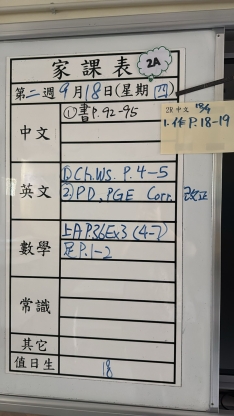 家課表
2A
第二週 9月18日(星期四)
中文
①書P.92-95
2R中文 18/9
1. 作P.18-19
英文
①Ch.WS. P.4-5
②P.D., PGE Corr. 改正
數學
上A P.36Ex3 (4-7)
足P.1-2
常識
其它
值日生
18